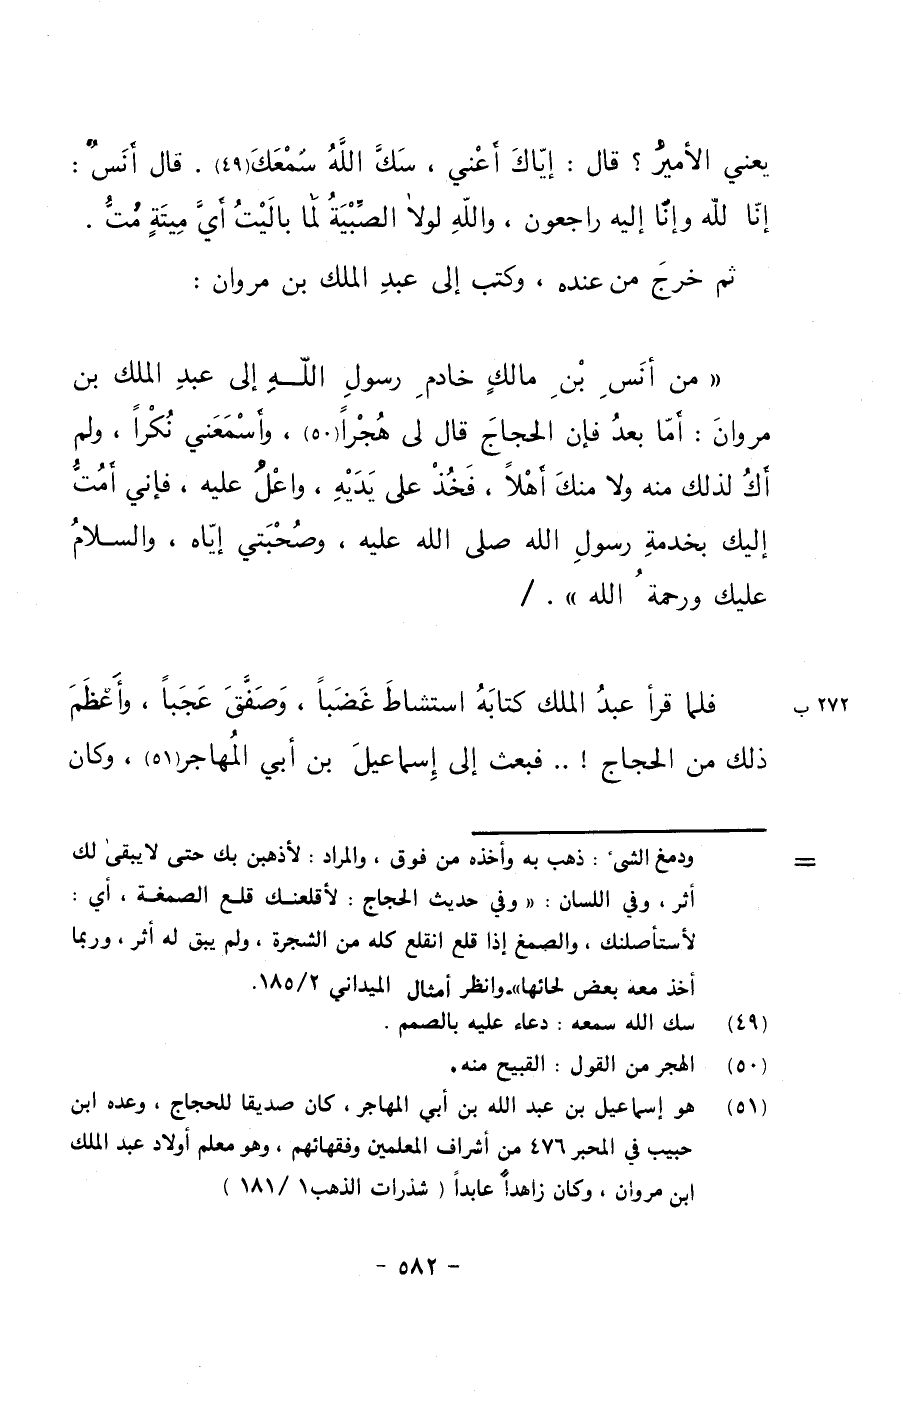 يعني الأميرُ ؟ قال : إيّاكَ أعْني ، سَكَّ اللَّهُ سَمْعَكَ(٤٩) . قال أنَسٌ :
إنّا لله وإنّا إليه راجعون ، واللهِ لولا الصِّبْيَةُ لَمَا بالَيْتُ أيَّ مِيتَةٍ مُتُّ .
ثم خرجَ من عنده ، وكتب إلى عبدِ الملك بن مروان :
« من أنَسِ بْنِ مالكٍ خادمِ رسولِ اللّـهِ إلى عبدِ الملك بن
مروانَ : أمّا بعدُ فإن الحجاجَ قال لى هُجْراً(٥٠) ، وأَسْمَعَني نُكْراً ، ولم
أكُ لذلك منه ولا منكَ أهْلاً ، فَخُذْ على يَدَيْهِ ، واعْلُ عليه ، فإني أمُتُّ
إليك بخدمةِ رسولِ الله صلى الله عليه ، وصُحْبَتي إيّاه ، والسـلامُ
عليك ورحمةُ الله » . /
٢٧٢ ب فلما قرأ عبدُ الملك كتابَهُ استشاطَ غَضَباً ، وَصَفَّقَ عَجَباً ، وأَعْظَمَ
ذلك من الحجاج ! .. فبعث إلى إسماعيلَ بن أبي المُهاجر(٥١) ، وكان
= ودمغ الشىء : ذهب به وأخذه من فوق ، والمراد : لأذهبن بك حتى لايبقى لك
أثر ، وفي اللسان : « وفي حديث الحجاج : لأقلعنـك قلـع الصمغـة ، أي :
لأستأصلنك ، والصمغ إذا قلع انقلع كله من الشجرة ، ولم يبق له أثر ، وربما
أخذ معه بعض لحائها».وانظر أمثال الميداني ١٨٥/٢.
(٤٩) سك الله سمعه : دعاء عليه بالصمم .
(٥٠) الهجر من القول : القبيح منه.
(٥١) هو إسماعيل بن عبد الله بن أبي المهاجر ، كان صديقا للحجاج ، وعده ابن
حبيب في المحبر ٤٧٦ من أشراف المعلمين وفقهائهم ، وهو معلم أولاد عبد الملك
ابن مروان ، وكان زاهداً عابداً ( شذرات الذهب١ /١٨١ )
- ٥٨٢ -